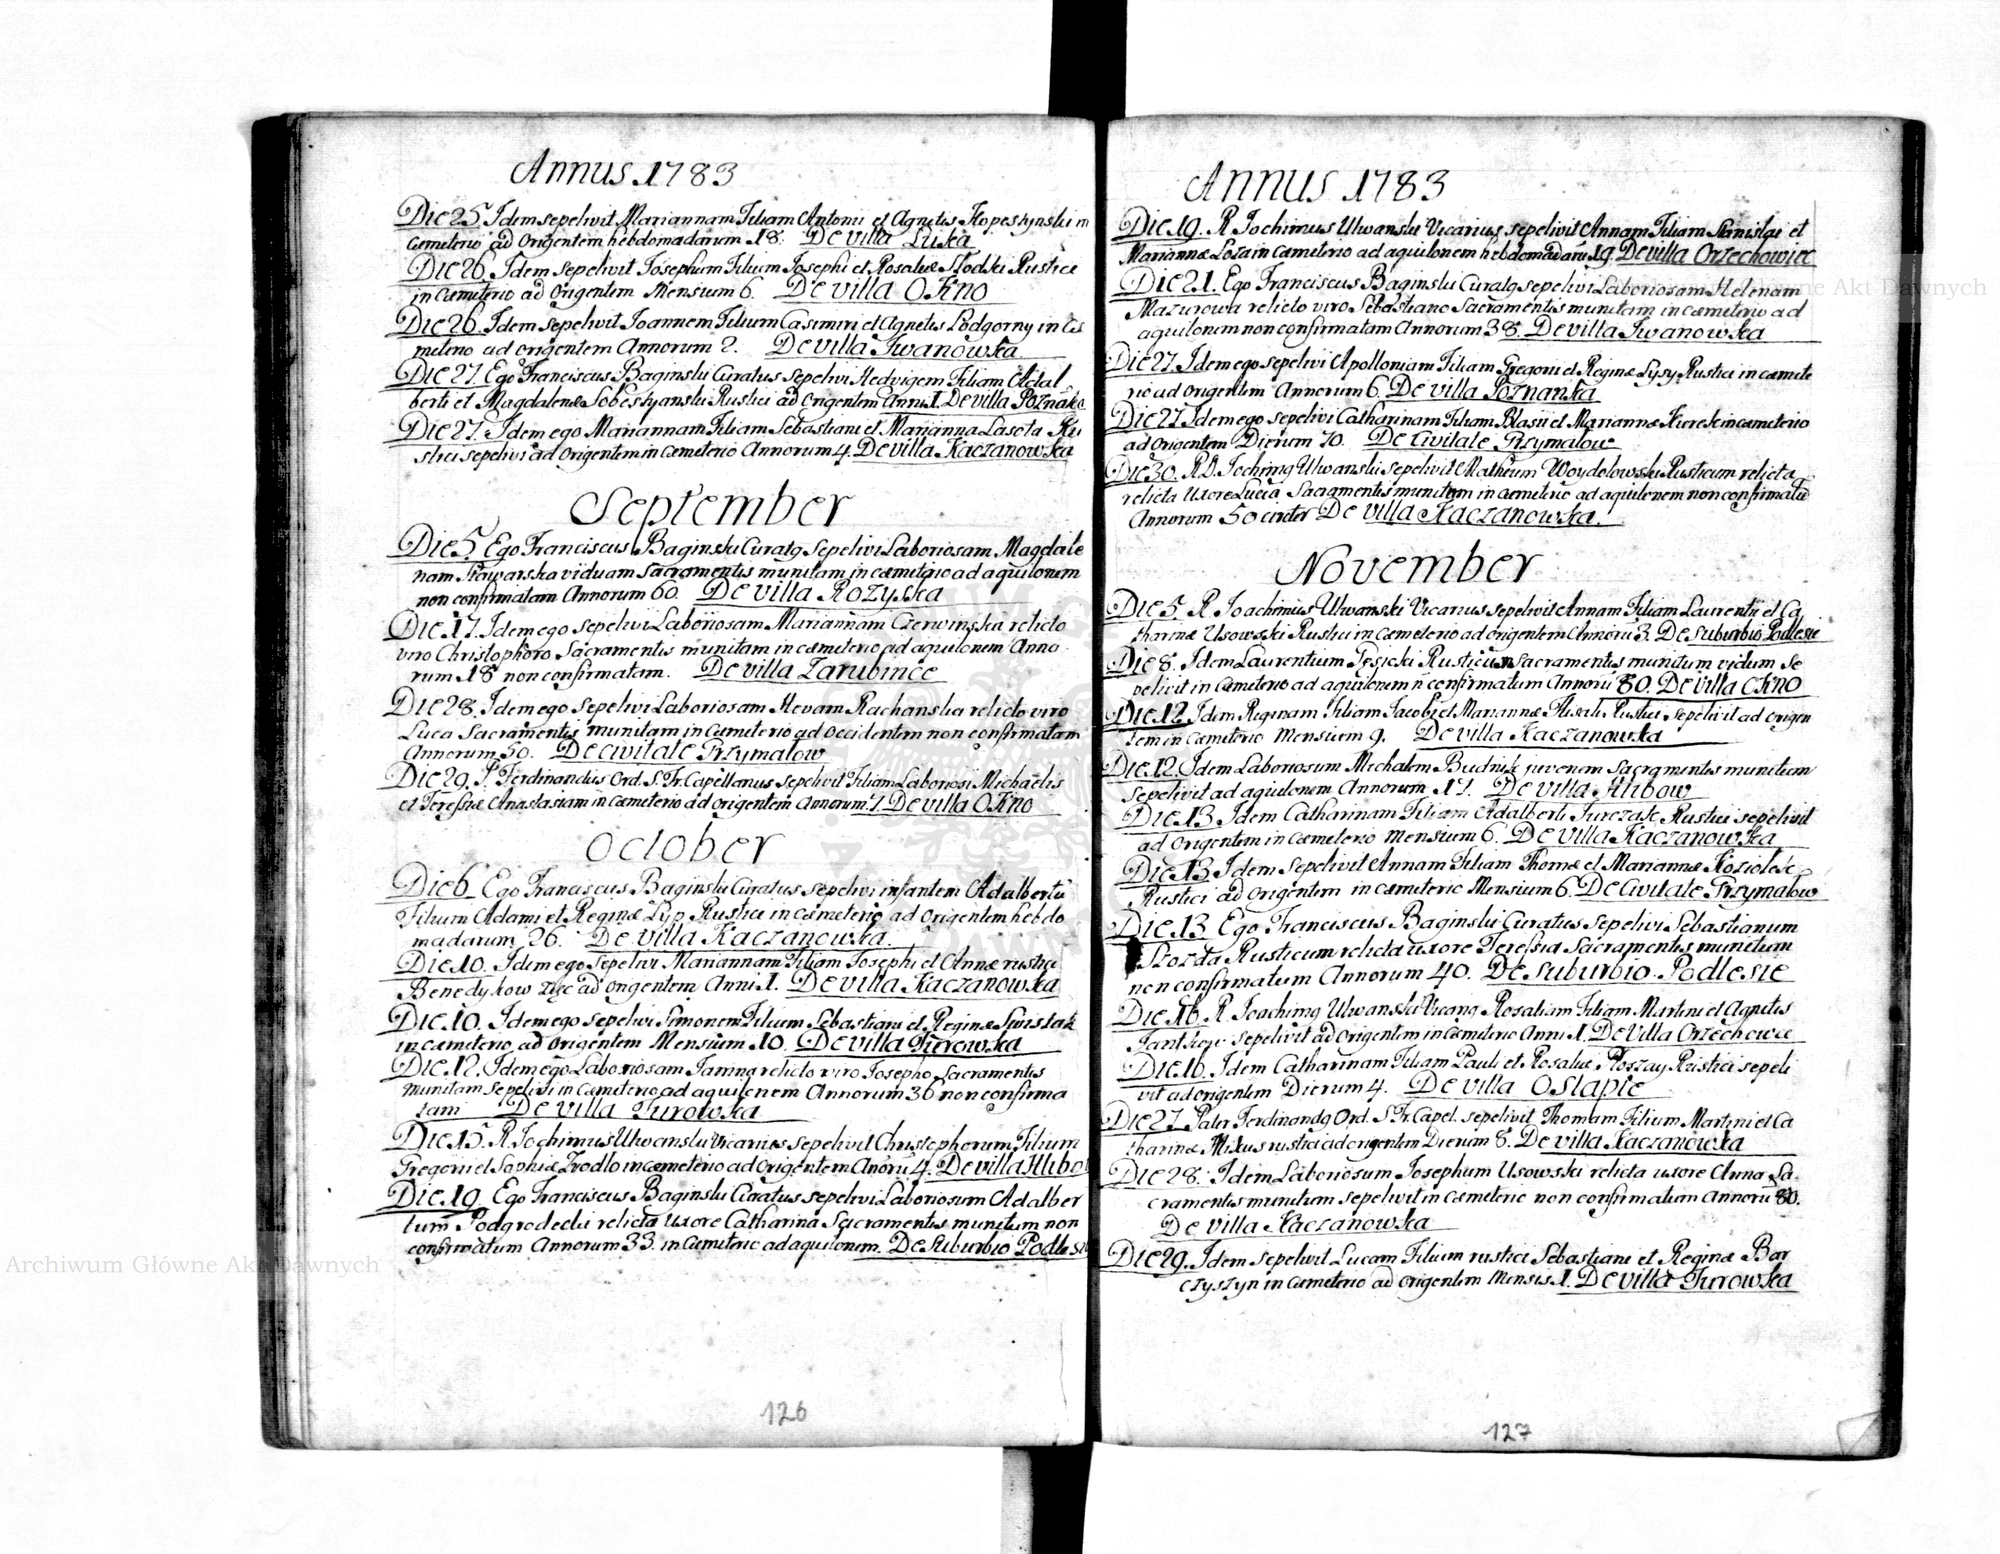 Annus 1783
Die 25. Idem sepelivit Mariannam Filiam Antonii et Agnetis
Cæmeterio ad Origentem hebdomadarum 18. De villa Luka
Die 26. Idem sepelivit Josephum Filium Josephi et Rosaliæ Słodki Rustici
in Cæmeterio ad Origentem Mensium 6. De villa Okno
Die 26. Idem sepelivit Joannem Filium Casimiri et Agnetis Podgorny in Cæ
meterio ad Origentem Annorum 2. De villa Iwanowka
Die 27. Ego Franciscus Baginski Curatus sepelivi Hedvigem Filiam Adal
berti et Magdalenæ Sobestyanski Rustici ad Origentem Anni 1. De villa Poznaka
Die 27. Idem ego Mariannam Filiam Sebastiani et Marianna Lasota Ru
stici sepelivi ad Origentem in Cæmeterio Annorum 4. De villa Kaczanowka
September
Die 5. Ego Franciscus Baginski Curatq Sepelivi Laboriosam Magdale
nam viduam Sacramentis munitam in cæmeterio ad aquilonem
non confirmatam Annorum 60. De villa Rożyska
Die 17. Idem ego sepelivi Laboriosam Mariannam Czerwinska relicto
viro Christophoro Sacramentis munitam in cæmeterio ad aquilonem Anno
rum 18 non confirmatam. De villa Zarubince
Die 28. Idem ego sepelivi Laboriosam Hevam Rachanska relicto viro
Luca Sacramentis munitam in Cæmeterio ad Occidentem non confirmatam
Annorum 50. De civitate Grzymałow
Die 29. P. Ferdinandus Ord. S. Fr. Capellanus sepelivit Filiam Laboriosi Michaelis
et Teresiæ Anastasiam in cæmeterio ad origentem Annorum 7. De villa Okno
October
Die 6. Ego Franciscus Baginski Curatus sepelivi infantem Adalbertū
Filium Adami et Reginæ Lyp Rustici in cæmeterio ad Origentem hebdo
madarum 26. De villa Kaczanowka.
Die 10. Idem ego sepelivi Mariannam Filiam Josephi et Annæ rustici
Benedykow Zięc ad Origentem Anni 1. De villa Kaczanowka
Die 10. Idem ego sepelivi Simonem Filium Sebastiani et Reginæ Swistak
in cæmeterio ad Origentem Mensium 10. De villa Turowka
Die 12. Idem ego Laboriosam relicto viro Josepho Sacramentis
munitam sepelivi in Cæmeterio ad aquilonem Annorum 36 non confirma
tam De villa Turowka
Die 15. R. Jochimus Ulwanski Vicarius sepelivit Christophorum Filium
Gregorii et Sophiæ Zrodlo in cæmeterio ad Origentem Anorū 4. De villa Hlibo
Die 19. Ego Franciscus Baginski Curatus sepelivi Laboriosum Adalber
tum Podgrodecki relicta uxore Catharina Sacramentis munitum non
confirmatum Annorum 33. in Cæmeterio ad aquilonem. De suburbio Podlesi
126
Annus 1783
Die 19. R Jochimus Ulwanski Vicarius sepelivit Annam Filiam Stanislai et
Mariannæ Loza in Cæmeterio ad aquilonem hebdomadarū 19. De villa Orzechowiec
Die 21. Ego Franciscus Baginski Curatq sepelivi Laboriosam Helenam
Mazurowa relicto viro Sebastiano Sacramentis munitam in cæmeterio ad
aquilonem non confirmatam Annorum 38. De villa Iwanowka
Die 27. Idem ego sepelivi Apolloniam Filiam Gregorii et Reginæ Lysy Rustici in cæmete
rio ad Origentem Annorum 6. De villa Poznanka
Die 27. Idem ego sepelivi Catharinam Filiam Blasii et Mariannæ in cæmeterio
ad Origentem Dierum 10. De Civitate Grzymałow
Die 30. R.D. Joching Ulwanski sepelivit Matheum Woydolowski Rusticum relicta
relicta Uxore Lucia Sacramentis munitum in cæmeterio ad aquilonem non confirmatū
Annorum 50 circiter De villa Kaczanowka.
November
Die 5. R Joachimus Ulwanski Vicarius sepelivit Annam Filiam Laurentii et Ca
tharinæ Usowski Rustici in cæmeterio ad origentem Annorū 3. De suburbio Podlesie
Die 8. Idem Laurentium Rusticum Sacramentis munitum vidum se
pelivit in Cæmeterio ad aquilonem n̄ confirmatum Annorū 80. De villa Okno
Die 12. Idem Reginam Filiam Jacobi et Mariannæ Rustici sepelivit ad Origen
tem in Cæmeterio Mensium 9. De villa Kaczanowka
Die 12. Idem Laboriosum Michalem Budnik juvenem Sacramentis munitum
sepelivit ad aquilonem Annorum 17. De villa Hlibow
Die 13. Idem Catharinam Filiam Adalberti Turczak Rustici sepelivit
ad Origentem in Cæmeterio Mensium 6. De villa Kaczanowka
Die 13. Idem sepelivit Annam Filiam Thomæ et Mariannæ Koziolek
Rustici ad Origentem in cæmeterio Mensium 6. De Civitate Grzymałow
Die 13 Ego Franciscus Baginski Curatus sepelivi Sebastianum
Rusticum relicta uxore Teresia Sacramentis munitum
non confirmatum Annorum 40. De suburbio Podlesie
Die 16. R Joaching Ulwanski Vicarq Rosaliam Filiam Martini et Agnetis
sepelivit ad Origentem in Cæmeterio Anni 1. De villa Orzechowce
Die 16. Idem Catharinam Filiam Pauli et Rosaliæ Ploszay Rustici sepeli
vit ad origentem Dierum 4. De villa Ostapie
Die 27. Pater Ferdinandq Ord. S. Fr. Capel. sepelivit Thomam Filium Martini et Ca
tharinæ Mikus rustici ad origentem Dierum 8. De villa Kaczanowka
Die 28. Idem Laboriosum Josephum Usowski relicta uxore Anna Sa
cramentis munitum sepelivit in Cæmeterio non confirmatum Annorū 80.
De villa Kaczanowka
Die 29. Idem sepelivit Lucam Filium rustici Sebastiani et Reginæ Bar
czyszyn in cæmeterio ad Origentem Mensis 1. De villa Turowka
127
Archiwum Główne Akt Dawnych
Główne Akt Dawnych